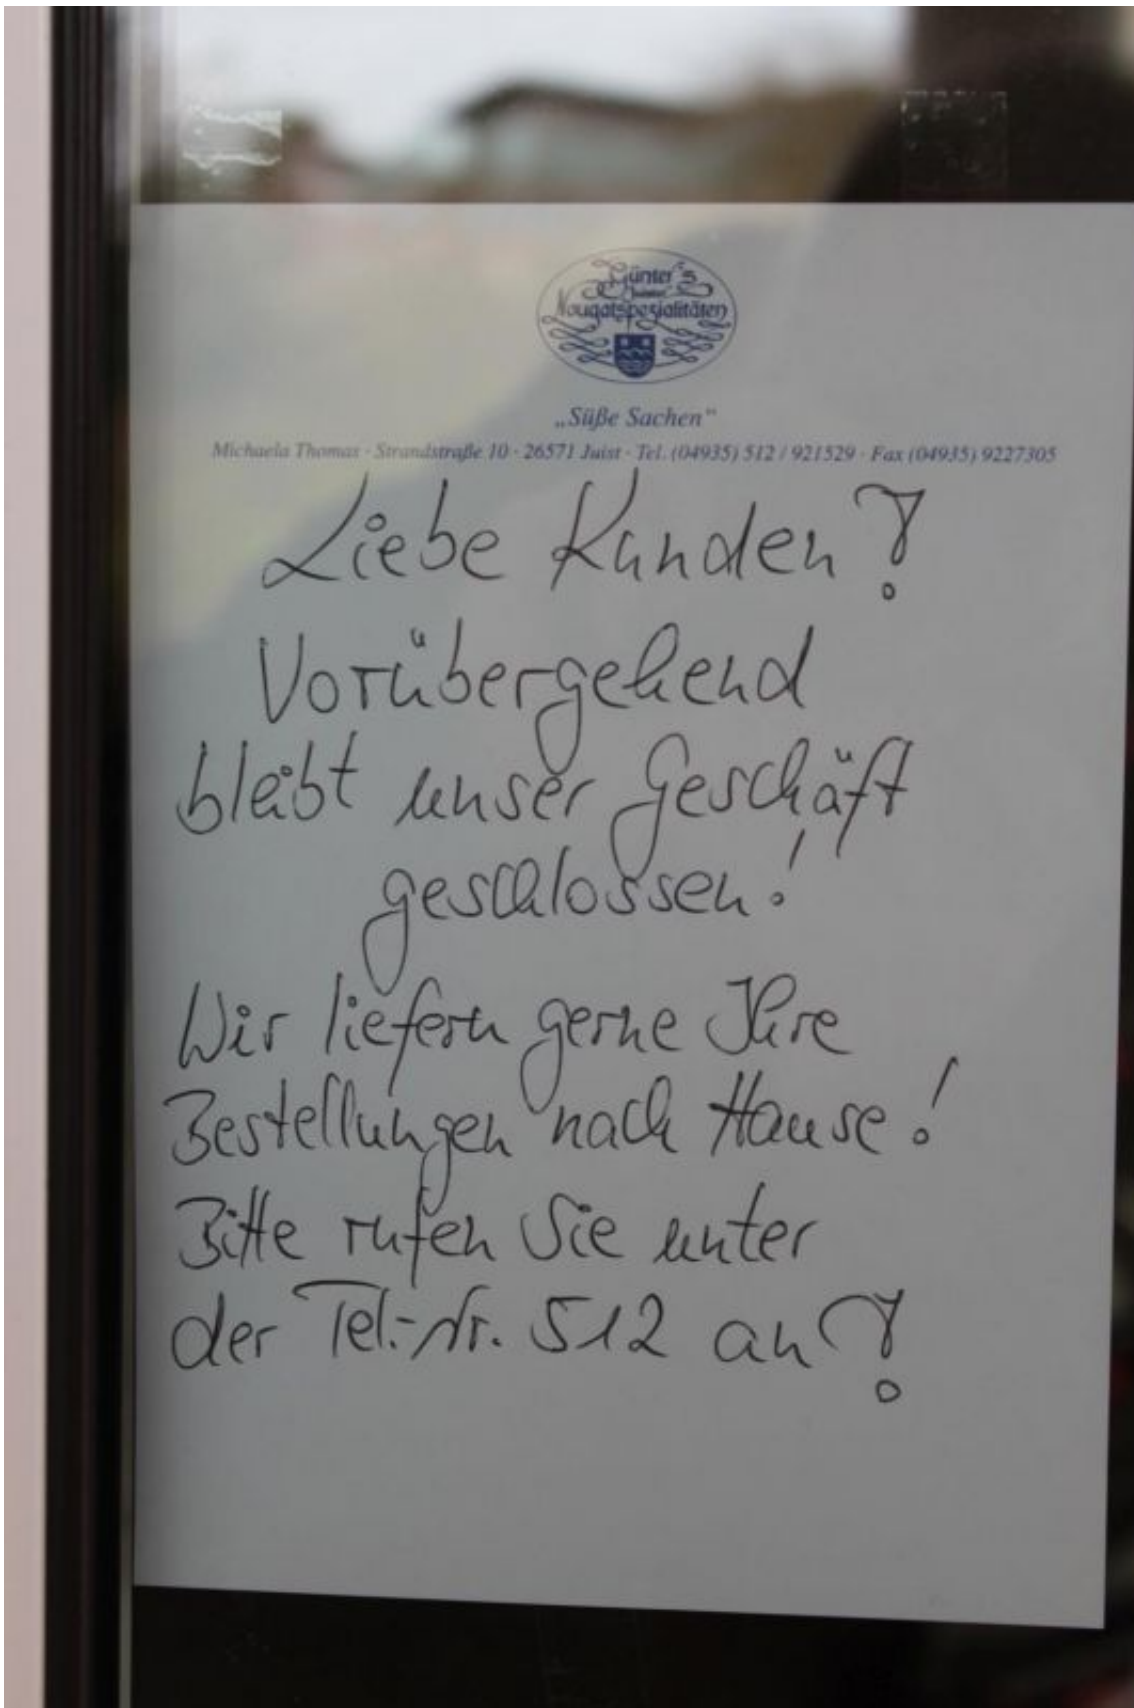 Günter's
Juister
Nougatspezialitäten
„Süße Sachen“
Michaela Thomas · Strandstraße 10 · 26571 Juist · Tel. (04935) 512 / 921529 · Fax (04935) 9227305
Liebe Kunden!
Vorübergehend
bleibt unser Geschäft
geschlossen!
Wir liefern gerne Ihre
Bestellungen nach Hause!
Bitte rufen Sie unter
der Tel.-Nr. 512 an!